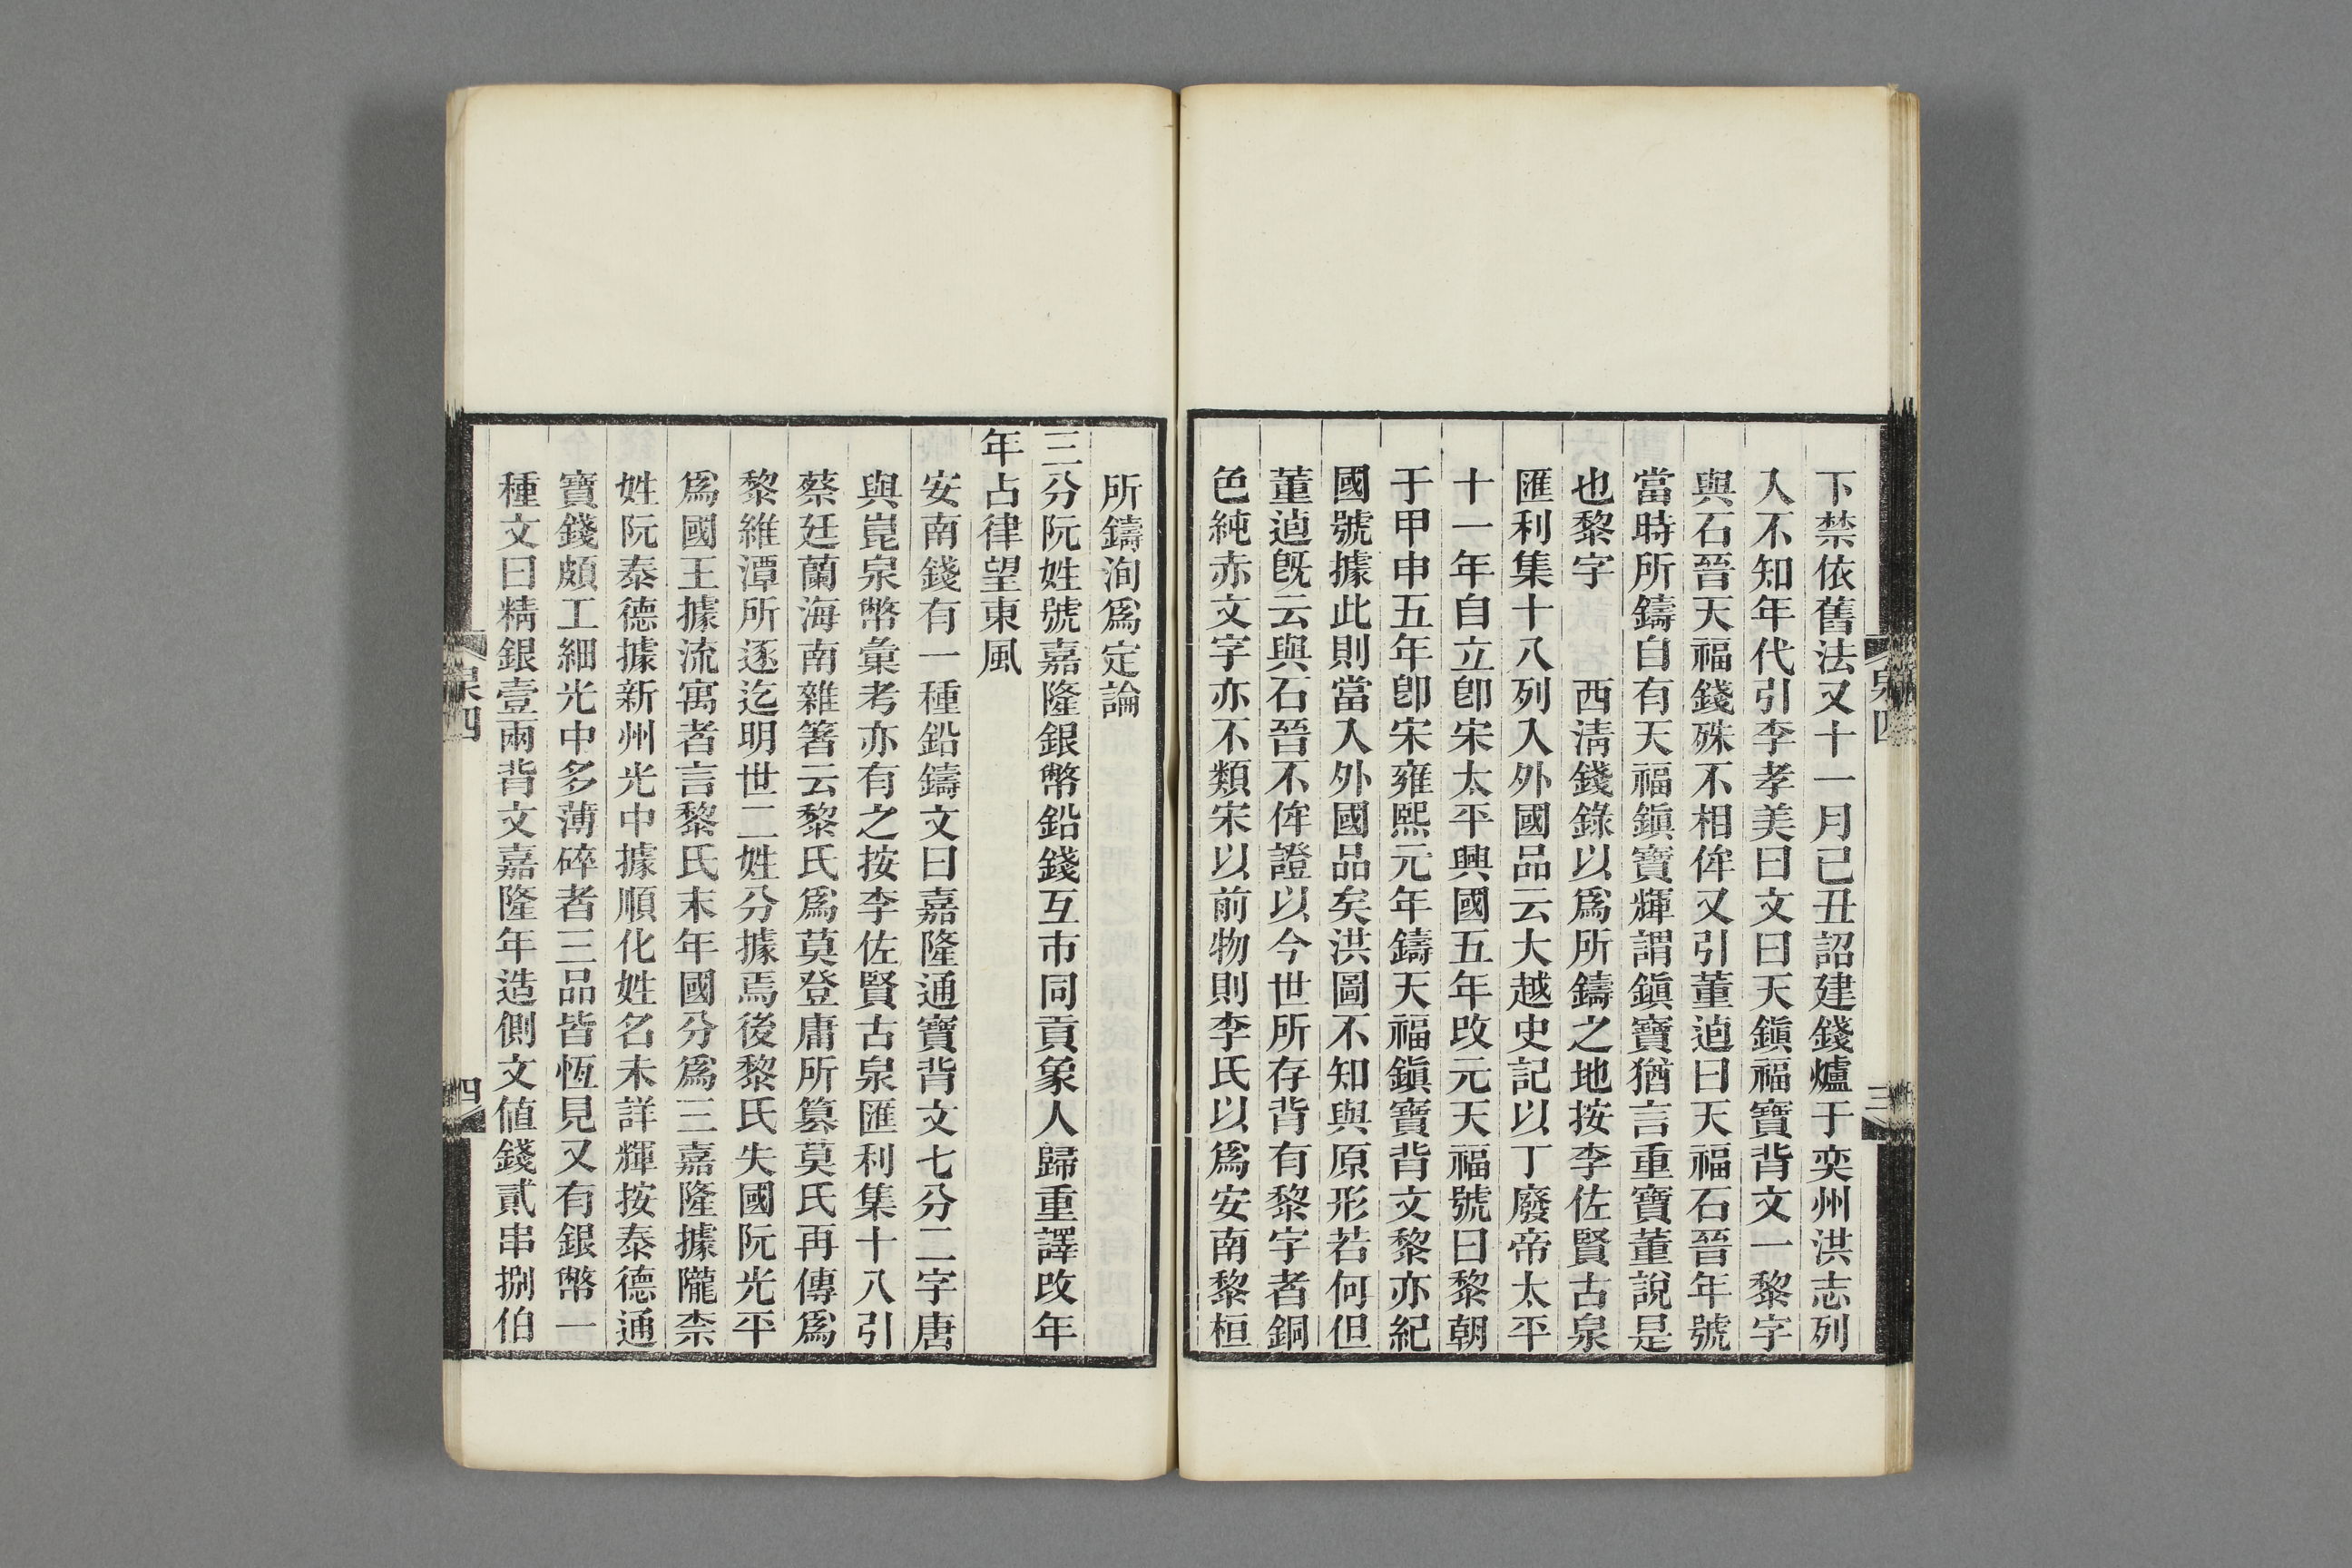 下禁依舊法又十一月己丑詔建錢爐于奕州洪志列
入不知年代引李孝美曰文曰天鎭福寶背文一黎字
與石晉天福錢殊不相侔又引董逌曰天福石晉年號
當時所鑄自有天福鎭寶輝謂鎭寶猶言重寶董說是
也黎字西淸錢錄以爲所鑄之地按李佐賢古泉
匯利集十八列入外國品云大越史記以丁廢帝太平
十一年自立卽宋太平興國五年改元天福號曰黎朝
于甲申五年卽宋雍熙元年鑄天福鎭寶背文黎亦紀
國號據此則當入外國品矣洪圖不知與原形若何但
董逌旣云與石晉不侔證以今世所存背有黎字者銅
色純赤文字亦不類宋以前物則李氏以爲安南黎桓
泉四
三
所鑄洵爲定論
三分阮姓號嘉隆銀幣鉛錢互市同貢象人歸重譯改年
年占律望東風
安南錢有一種鉛鑄文曰嘉隆通寶背文七分二字唐
與崑泉幣彙考亦有之按李佐賢古泉匯利集十八引
蔡廷蘭海南雜箸云黎氏爲莫登庸所篡莫氏再傳爲
黎維潭所逐迄明世二姓分據焉後黎氏失國阮光平
爲國王據流寓者言黎氏末年國分爲三嘉隆據隴柰
姓阮泰德據新州光中據順化姓名未詳輝按泰德通
寶錢頗工細光中多薄碎者三品皆恆見又有銀幣一
種文曰精銀壹兩背文嘉隆年造側文値錢貳串捌伯
泉四
四